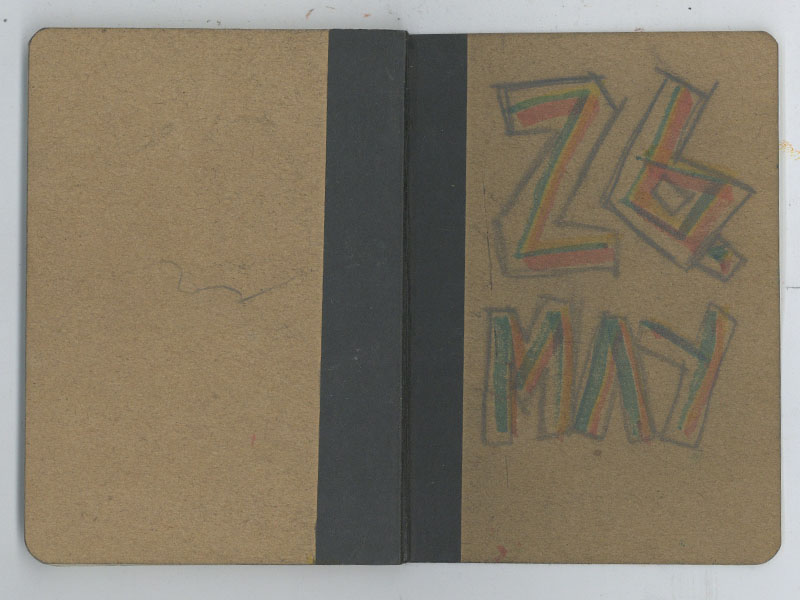 26.
MAY